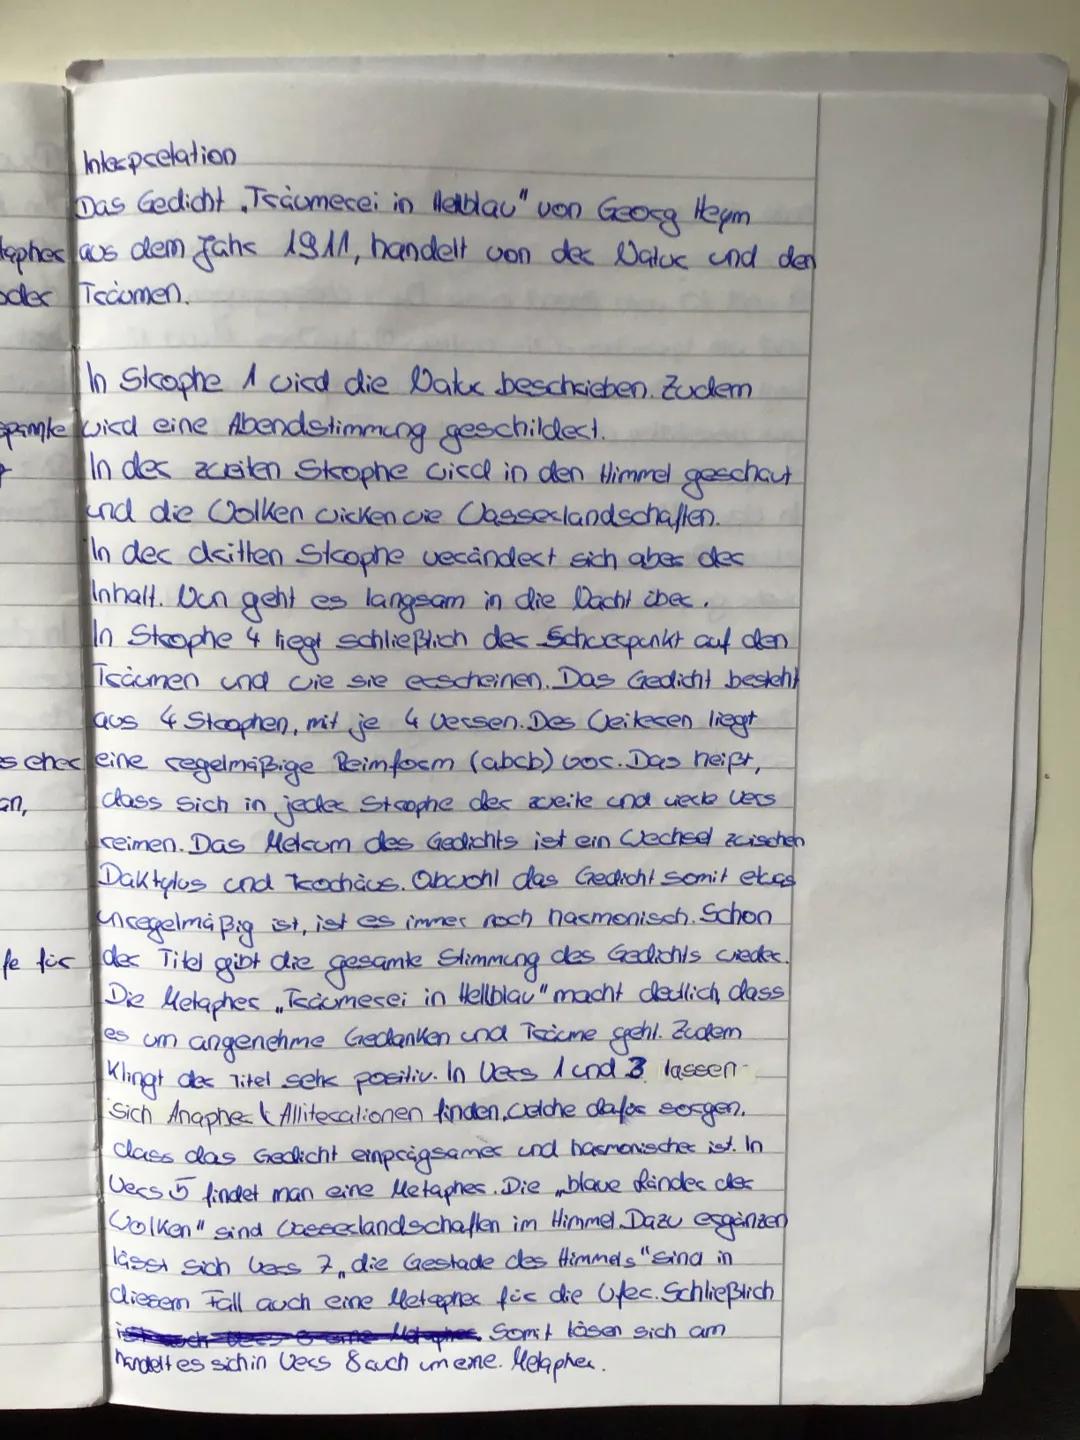 Interpretation
Das Gedicht „Träumerei in Hellblau" von Georg Heym
tapher aus dem Jahr 1911, handelt von der Natur und den
oder Träumen.
In Strophe 1 wird die Natur beschrieben. Zudem
wird eine Abendstimmung geschildert.
In der zweiten Strophe wird in den Himmel geschaut
und die Wolken wirken wie Wasserlandschaften.
In der dritten Strophe verändert sich aber der
Inhalt. Nun geht es langsam in die Nacht über.
In Strophe 4 liegt schließlich der Schwerpunkt auf den
Träumen und wie sie erscheinen. Das Gedicht besteht
aus 4 Strophen, mit je 4 Versen. Des Weiteren liegt
s eher eine regelmäßige Reimform (abcb) vor. Das heißt,
an, dass sich in jeder Strophe der zweite und vierte Vers
reimen. Das Metrum des Gedichts ist ein Wechsel zwischen
Daktylus und Trochäus. Obwohl das Gedicht somit etwas
unregelmäßig ist, ist es immer noch harmonisch. Schon
fe für der Titel gibt die gesamte Stimmung des Gedichts wieder.
Die Metapher „Träumerei in Hellblau" macht deutlich, dass
es um angenehme Gedanken und Träume geht. Zudem
klingt der Titel sehr positiv. In Vers 1 und 3 lassen
sich Anapher & Alliterationen finden, welche dafür sorgen,
dass das Gedicht einprägsamer und harmonischer ist. In
Vers 5 findet man eine Metapher. Die „blaue Länder der
Wolken" sind Wasserlandschaften im Himmel. Dazu ergänzen
lässt sich Vers 7, „die Gestade des Himmels" sind in
diesem Fall auch eine Metapher für die Ufer. Schließlich
Somit lösen sich am
handelt es sich in Vers 8 auch um eine Metapher.